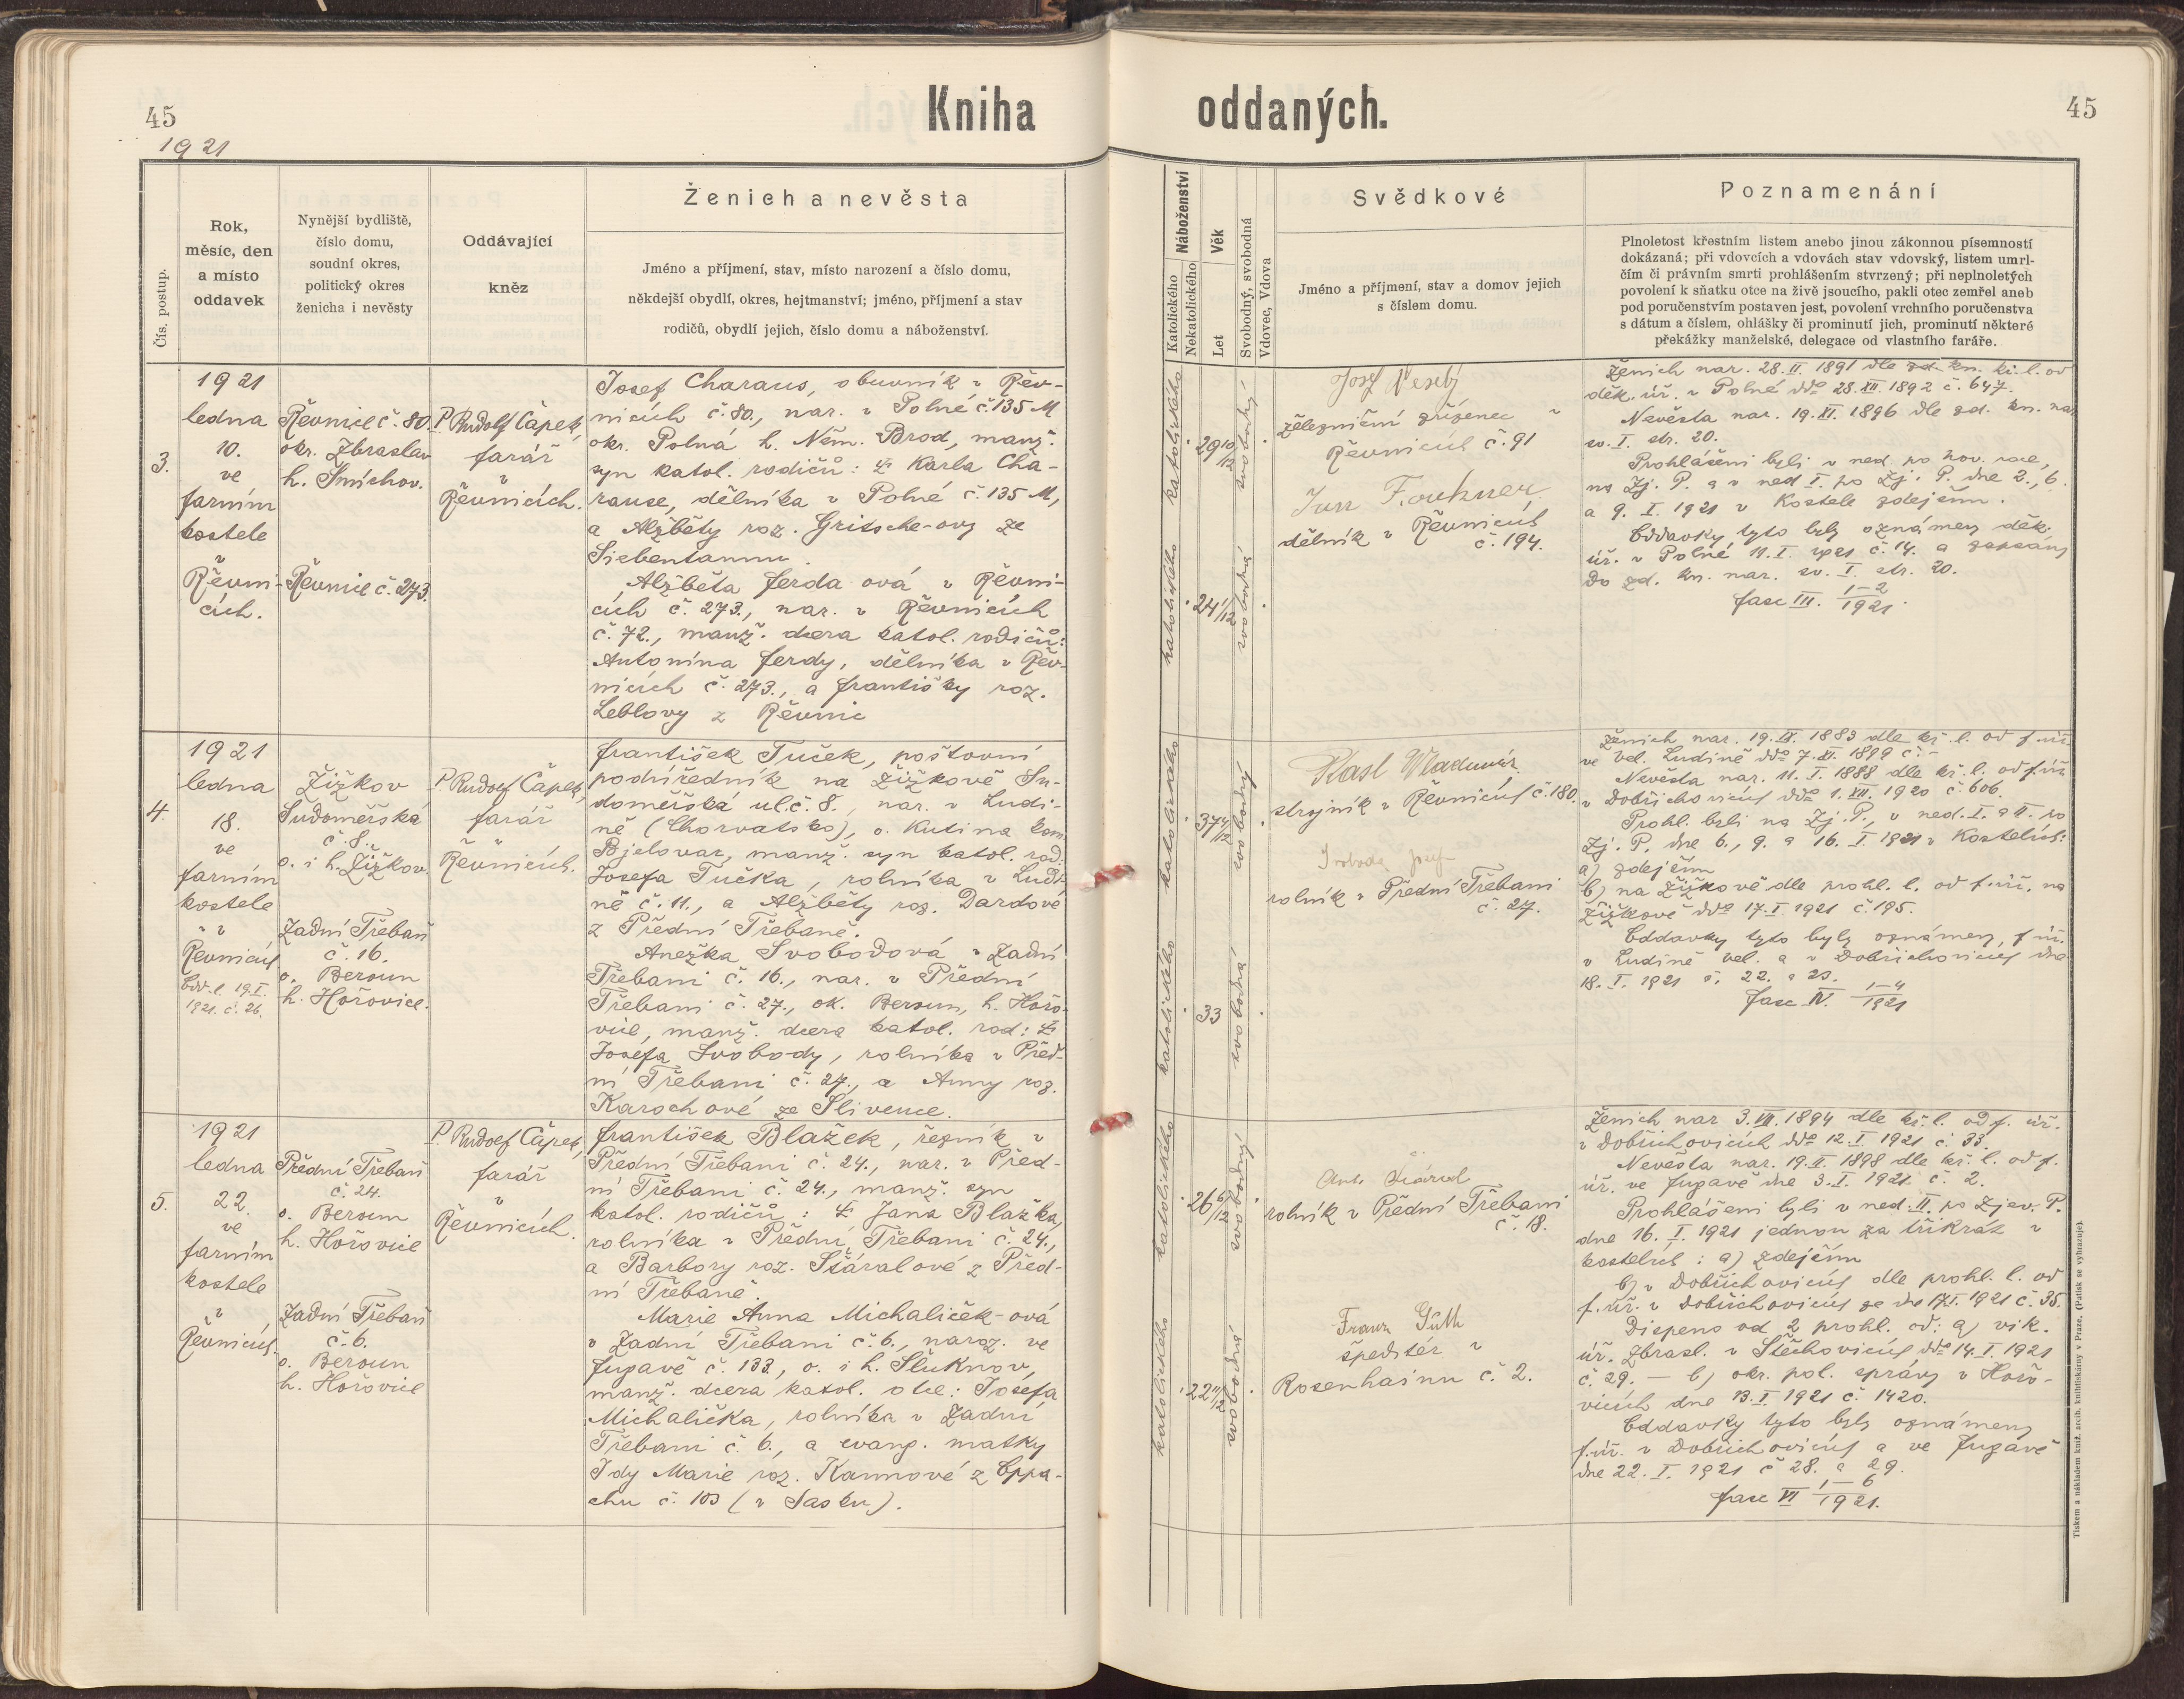 45
1921
Kniha
oddaných.
45
Čís. postup.
Rok,
měsíc, den
a místo
oddavek
Nynější bydliště,
číslo domu,
soudní okres,
politický okres
ženicha i nevěsty
Oddávající
kněz
Ženich a nevěsta
Jméno a příjmení, stav, místo narození a číslo domu,
někdejší obydlí, okres, hejtmanství; jméno, příjmení a stav
rodičů, obydlí jejich, číslo domu a náboženství.
Náboženství
Katolického
Nekatolického
Věk
Let
Svobodný, svobodná
Vdovec, Vdova
Svědkové
Jméno a příjmení, stav a domov jejich
s číslem domu.
Poznamenání
Plnoletost křestním listem anebo jinou zákonnou písemností
dokázaná; při vdovcích a vdovách stav vdovský, listem umrl-
čím či právním smrti prohlášením stvrzený; při neplnoletých
povolení k sňatku otce na živě jsoucího, pakli otec zemřel aneb
pod poručenstvím postaven jest, povolení vrchního poručenstva
s dátum a číslem, ohlášky či prominutí jich, prominutí některé
překážky manželské, delegace od vlastního faráře.
3.
1921
ledna
10.
ve
farním
kostele
v
Řevni-
cích.
Řevnice č. 80.
okr. Zbraslav
h. Smíchov.
Řevnice č. 273.
P. Rudolf Čápek,
farář
v
Řevnicích.
Josef Charaus, obuvník v Řev-
nicích č. 80., nar. v Polné č. 135 M
okr. Polná h. Něm. Brod, manž.
syn katol. rodičů: Karla Cha-
rause, dělníka v Polné č. 135 M,
a Alžběty roz. Gritsche-ovy ze
Siebentannu.
Alžběta Ferda ová v Řevni-
cích č. 273., nar. v Řevnicích
č. 72., manž. dcera katol. rodičů:
Antonína Ferdy, dělníka v Řev-
nicích č. 273., a Františky roz.
Leblovy z Řevnic
katolického
29 10/12
svobodný
katolického
24 1/12
svobodná
Josef Veselý
železniční zřízenec v
Řevnicích č. 91
dělník v Řevnicích
č. 194.
Ženich nar. 28. II. 1891 dle zd. kn. kř. l. od
děk. úř. v Polné ddo 28. XII. 1892 č. 647.
Nevěsta nar. 19. XI. 1896 dle zd. kn. nar.
sv. I. str. 20.
Prohlášeni byli v ned. po nov. roce,
na Zj. P. a v ned I. po Zj. P. dne 2., 6.
a 9. I. 1921 v Kostele zdejším.
Oddavky tyto byly oznámeny děk.
úř. v Polné 11. I. 1921 č. 14. a zapsány
do zd. kn. nar. sv. I. str. 20.
fasc III. 1-2/1921.
4.
1921
ledna
18.
ve
farním
kostele
v
Řevnicích
Odd. l. 19. I.
1921. č. 26.
Žižkov
Sudoměřská
č. 8.
o. i h. Žižkov.
Zadní Třebaň
č. 16.
o. Beroun
h. Hořovice.
P. Rudolf Čápek,
farář
v
Řevnicích.
František Tuček, poštovní
podúředník na Žižkově Su-
doměřská ul. č. 8., nar. v Ludi-
ně (Chorvatsko), o. Kutina kom.
Bjelovar, manž. syn katol. rod.:
Josefa Tučka, rolníka v Ludi-
ně č. 11., a Alžběty roz. Dardové
z Přední Třebaně.
Anežka Svobodová v Zadní
Třebani č. 16., nar. v Přední
Třebani č. 27., ok. Beroun, h. Hořo-
vice, manž. dcera katol. rod:
Josefa Svobody, rolníka v Před-
ní Třebani č. 27., a Anny roz.
Karochové ze Slivence.
katolického
37 4/12
svobodný
katolického
33
svobodná
strojník v Řevnicích č. 180.
Svoboda Josef
rolník v Přední Třebani
č. 27.
Ženich nar. 19. IX. 1883 dle kř. l. od f. úř.
ve vel. Ludině ddo 7. XI. 1899 č. -
Nevěsta nar. 11. I. 1888 dle kř. l. od f. úř.
v Dobřichovicích ddo 1. XII. 1920 č. 606.
Prohl. byli na Zj. P., v ned. I. a II. po
Zj. P. dne 6., 9. a 16. I. 1921 v Kostelích:
a) zdejším
b) na Žižkově dle prohl. l. od f. úř. na
Žižkově ddo 17. I. 1921 č. 195.
Oddavky tyto byly oznámeny, f. úř.
v Ludině vel. a v Dobřichovicích dne
18. I. 1921 č. 22. a 23.
fasc IV. 1-4/1921
5.
1921
ledna
22.
ve
farním
kostele
v
Řevnicích.
Přední Třebaň
č. 24.
o. Beroun
h. Hořovice
Zadní Třebaň
č. 6.
o. Beroun
h. Hořovice
P. Rudolf Čápek,
farář
v
Řevnicích.
František Blažek, řezník v
Přední Třebani č. 24., nar. v Před-
ní Třebani č. 24., manž. syn
katol. rodičů: Jana Blažka,
rolníka v Přední Třebani č. 24.,
a Barbory roz. Sťáralové z Před-
ní Třebaně.
Marie Anna Michaliček-ová
v Zadní Třebani č. 6., naroz. ve
Fugavě č. 133., o. i h. Šluknov,
manž. dcera katol. otce: Josefa
Michalička, rolníka v Zadní
Třebani č. 6., a evang. matky
Idy Marie roz. Kannové z Oppa-
chu č. 103 (v Sasku).
katolického
26 6/12
svobodný
katolického
22 11/12
svobodná
rolník v Přední Třebani
č. 18.
Franz Güth
speditér v
Rosenhainu č. 2.
Ženich nar 3. VII. 1894 dle kř. l. od f. úř.
v Dobřichovicích ddo 12. I. 1921 č. 33.
Nevěsta nar. 19. II. 1898 dle kř. l. od f.
úř. ve Fugavě dne 3. I. 1921 č. 2.
Prohlášeni byli v ned. II. po Zjev. P.
dne 16. I. 1921 jednou za třikrát v
kostelích: a) zdejším
b) v Dobřichovicích dle prohl. l. od
f. úř. v Dobřichovicích ze dne 17. I. 1921 č. 35.
Dispens od 2 prohl. od: a) vik.
úř. Zbrasl. v Štěchovicích ddo 14. I. 1921
č. 29. — b) okr. pol. správy v Hořo-
vicích dne 13. I. 1921 č. 1420.
Oddavky tyto byly oznámeny
f. úř. v Dobřichovicích a ve Fugavě
dne 22. I. 1921 č 28. a 29.
fasc VI 1-6/1921.
Tiskem a nákladem kníž. arcib. knihtiskárny v Praze. (Patisk se vyhrazuje).